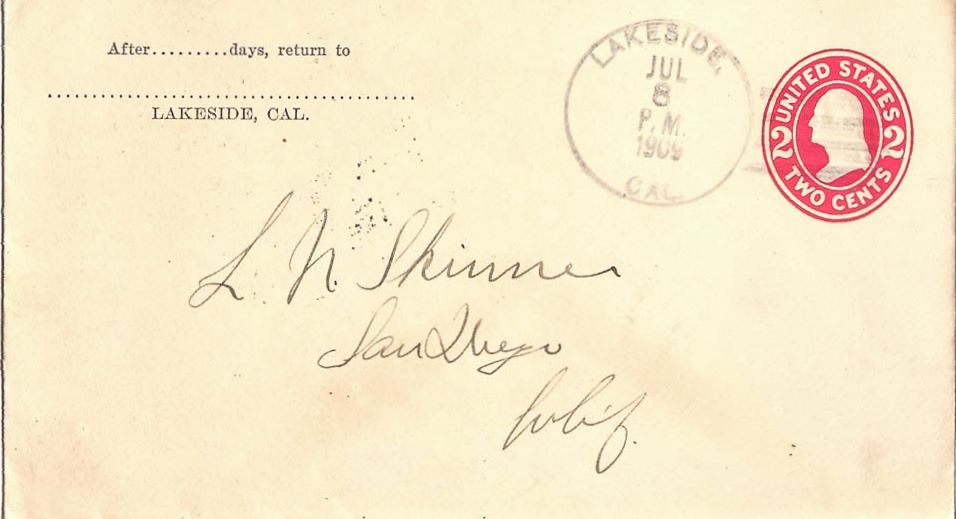 After.........days, return to
........................................
LAKESIDE, CAL.
LAKESIDE,
JUL
8
P.M.
1909
CAL.
UNITED STATES
2 2
TWO CENTS
L. N. Skinner
San Diego
Calif.